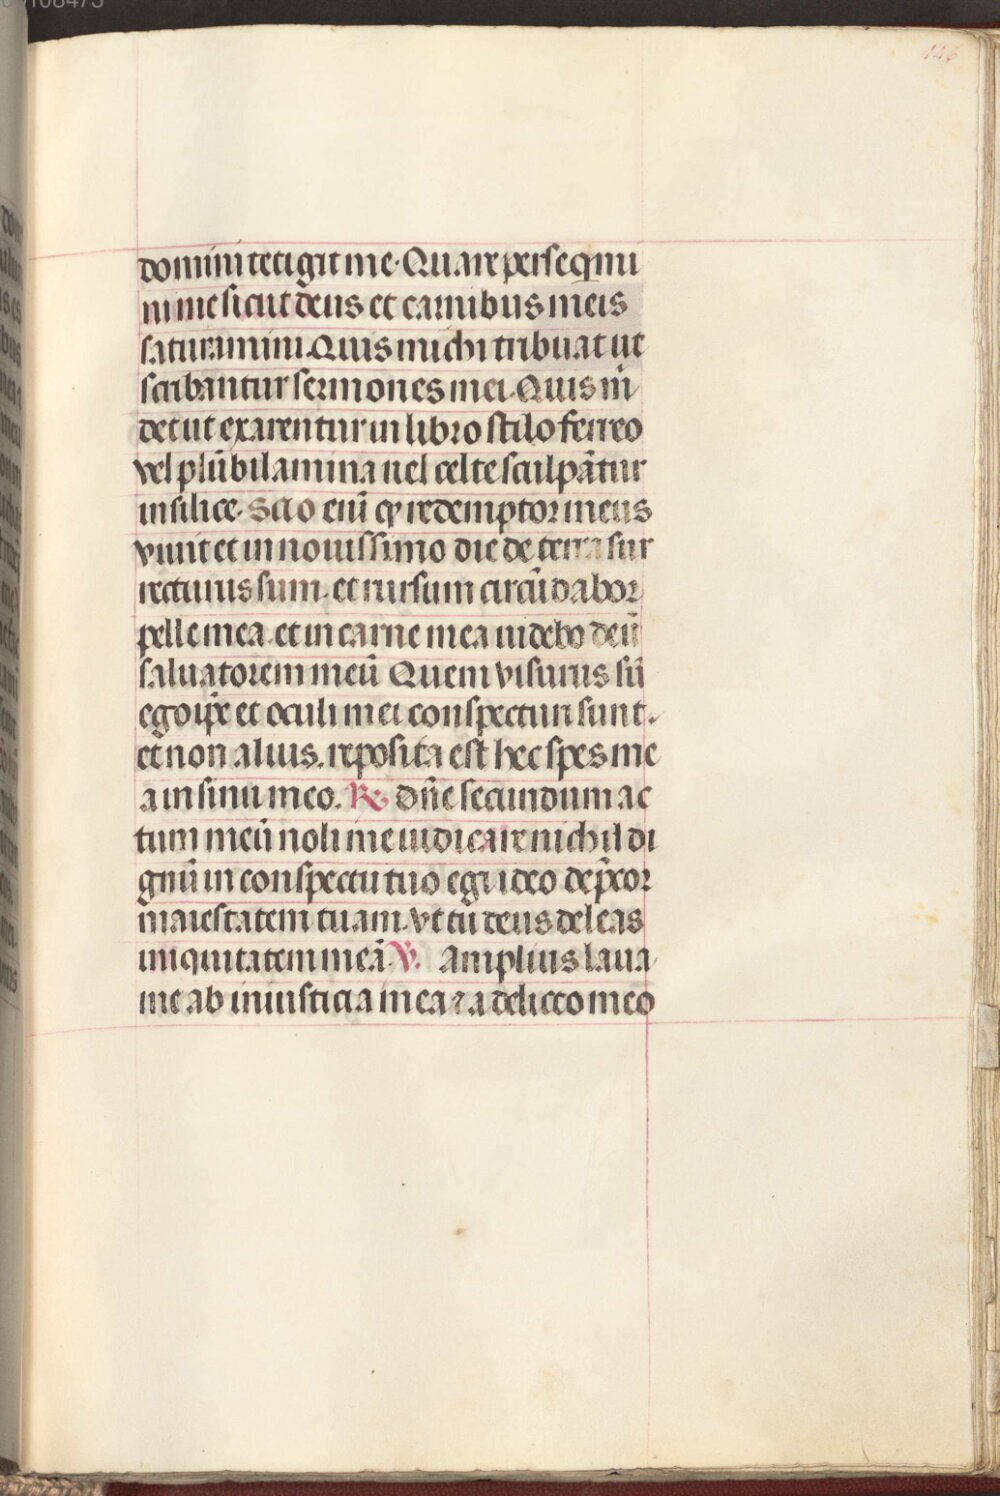 146
domini tetigit me. Quare persequi
ni me sicut deus et carnibus meis
saturamini. Quis michi tribuat ut
scribantur sermones mei. Quis m̄
det ut exarentur in libro stilo ferreo
vel plūbi lamina uel celte sculpātur
in silice. Scio enī ꝙ redemptor meus
viuit et in nouissimo die de terra sur
recturus sum. et rursum circūdabor
pelle mea. et in carne mea uidebo deū
saluatorem meū Quem visurus sū
ego ip̄e et oculi mei conspecturi sunt.
et non alius. reposita est hec spes me
a in sinu meo. ℟. dn̄e secundum ac
tum meū noli me iudicare nichil di
gnū in conspectu tuo egi ideo dep̄cor
maiestatem tuam. vt tu deus deleas
iniquitatem meā ℣. Amplius laua
me ab iniusticia mea ⁊ a delicto meo